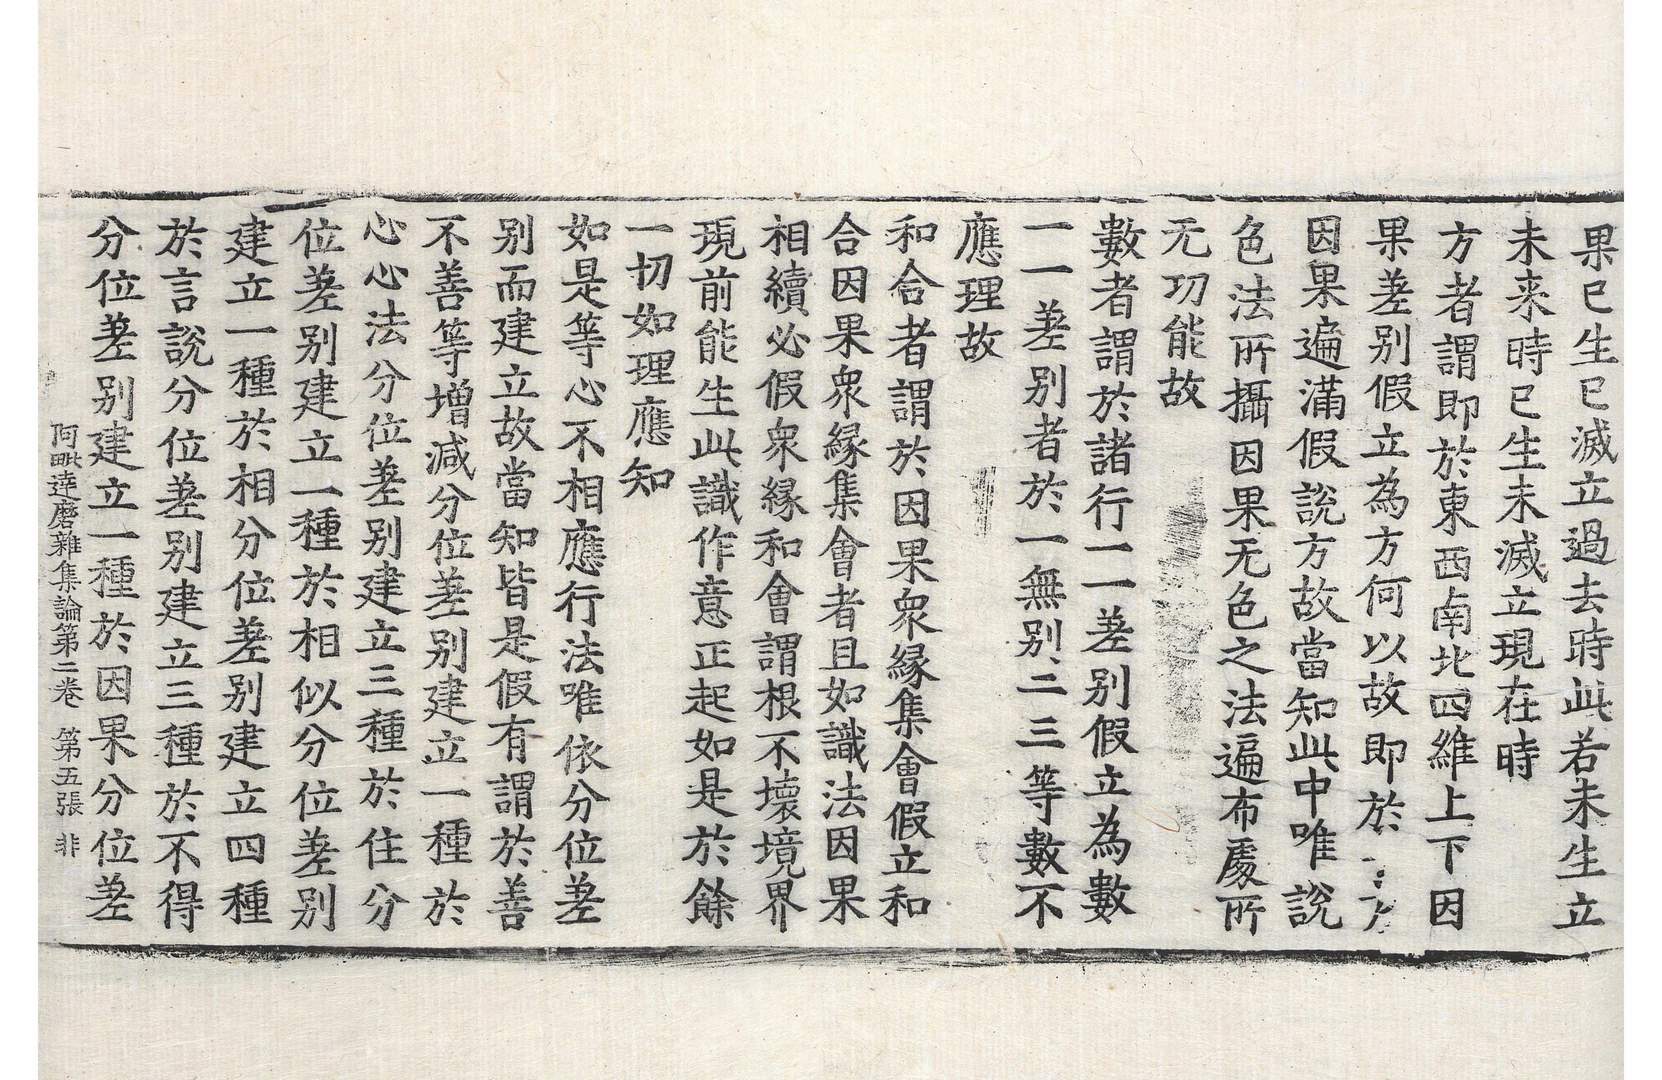 果已生已滅立過去時此若未生立
未来時已生未滅立現在時
方者謂即於東西南北四維上下因
果差别假立為方何以故即於
因果遍滿假說方故當知此中唯說
色法所攝因果无色之法遍布處所
无功能故
數者謂於諸行一一差别假立為數
一一差别者於一無别二三等數不
應理故
和合者謂於因果衆縁集會假立和
合因果衆縁集會者且如識法因果
相續必假衆縁和會謂根不壞境界
現前能生此識作意正起如是於餘
一切如理應知
如是等心不相應行法唯依分位差
别而建立故當知皆是假有謂於善
不善等增減分位差别建立一種於
心心法分位差别建立三種於住分
位差别建立一種於相似分位差别
建立一種於相分位差别建立四種
於言說分位差别建立三種於不得
分位差别建立一種於因果分位差
阿毗達磨雜集論第二卷 第五張 非